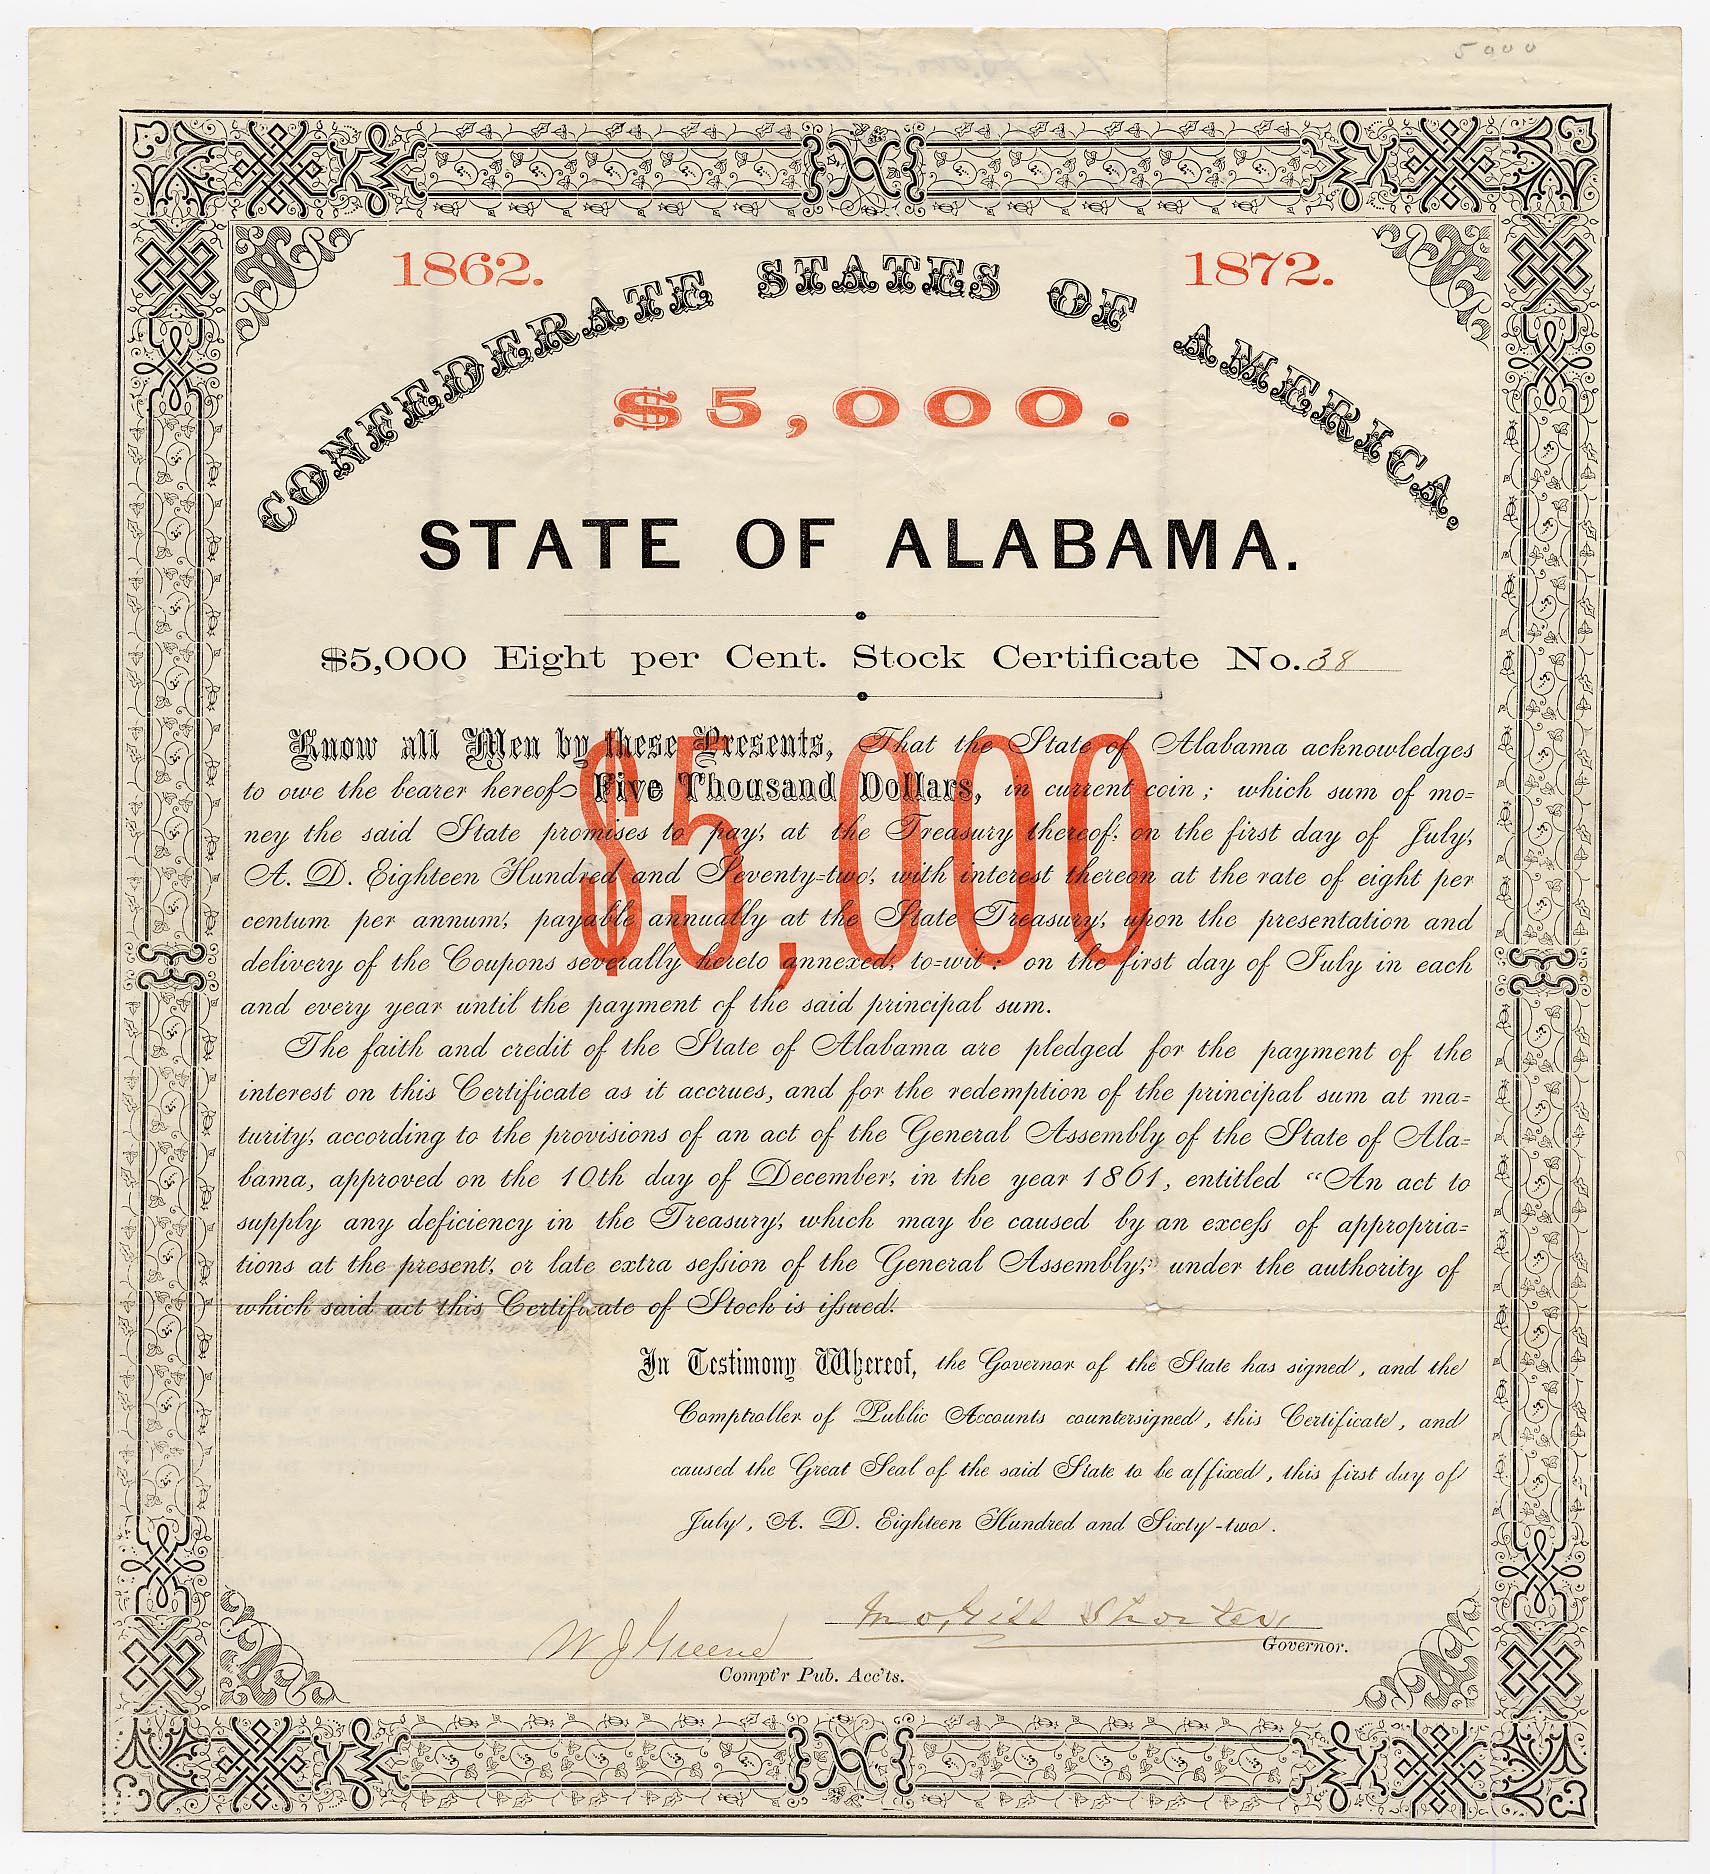 5000
1862. 1872.
CONFEDERATE STATES OF AMERICA.
$5,000.
STATE OF ALABAMA.
$5,000 Eight per Cent. Stock Certificate No. 38
$5,000
Know all Men by these Presents, That the State of Alabama acknowledges
to owe the bearer hereof Five Thousand Dollars, in current coin; which sum of mo=
ney the said State promises to pay, at the Treasury thereof, on the first day of July,
A. D. Eighteen Hundred and Seventy=two, with interest thereon at the rate of eight per
centum per annum, payable annually at the State Treasury, upon the presentation and
delivery of the Coupons severally hereto annexed, to=wit: on the first day of July in each
and every year until the payment of the said principal sum.
The faith and credit of the State of Alabama are pledged for the payment of the
interest on this Certificate as it accrues, and for the redemption of the principal sum at ma=
turity, according to the provisions of an act of the General Assembly of the State of Ala=
bama, approved on the 10th day of December, in the year 1861, entitled "An act to
supply any deficiency in the Treasury, which may be caused by an excess of appropria=
tions at the present, or late extra session of the General Assembly," under the authority of
which said act this Certificate of Stock is issued.
In Testimony Whereof, the Governor of the State has signed, and the
Comptroller of Public Accounts countersigned, this Certificate, and
caused the Great Seal of the said State to be affixed, this first day of
July, A. D. Eighteen Hundred and Sixty-two.
Jno. Gill Shorter
Governor.
W J Greene
Compt'r Pub. Acc'ts.